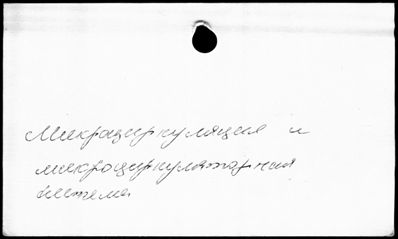 Микроциркуляция и
микроциркуляторная
система